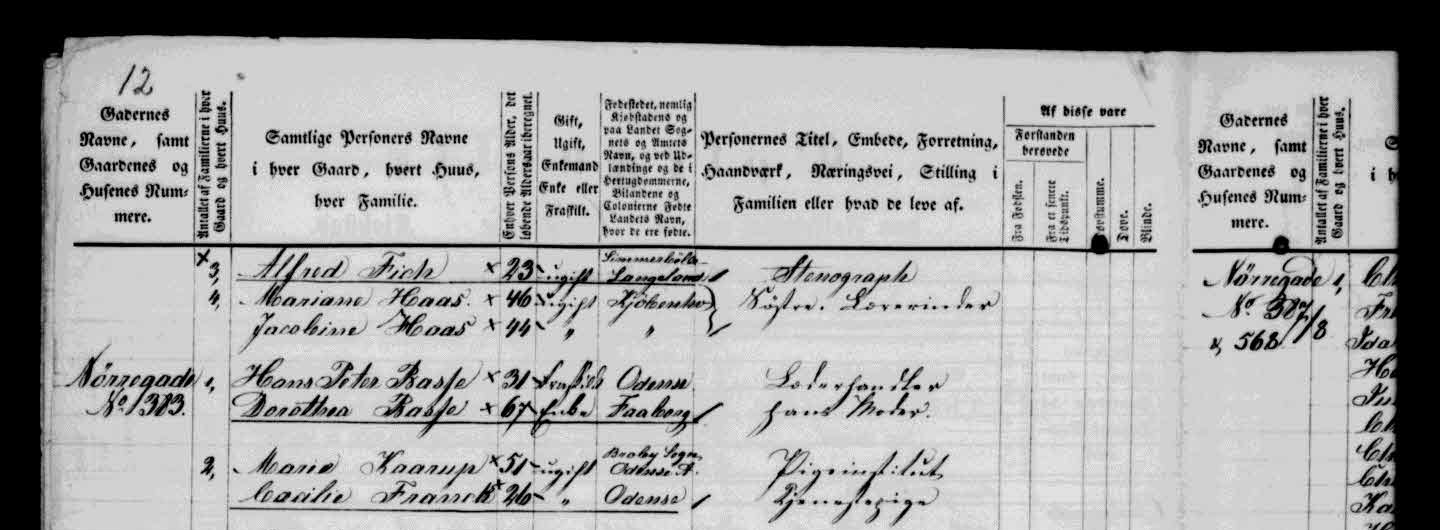 12
Gadernes
Navne, samt
Gaardenes og
Husenes Num-
mere.
Antallet af Familierne i hver
Gaard og hvert Huus.
Samtlige Personers Navne
i hver Gaard, hvert Huus,
hver Familie.
Enhver Persons Alder, det
løbende Aldersaar iberegnet.
Gift,
Ugift,
Enkemand
Enke eller
Fraskilt.
Fødestedet, nemlig
Kjøbstadens og
paa Landet Sog-
nets og Amtets
Navn, og ved Ud-
lændinge og de i
Hertugdømmerne,
Bilandene og
Colonierne Fødte
Landets Navn,
hvor de ere fødte.
Personernes Titel, Embede, Forretning,
Haandværk, Næringsvei, Stilling i
Familien eller hvad de leve af.
Af disse vare
Forstanden
berøvede
Fra Fødslen.
Fra et senere
Tidspunkt.
Døvstumme.
Døve.
Blinde.
3, Alfred Fich 23 ugift Langeland Stenograph
4, Mariane Haas. 46 ugift Kjöbenhv Söstre. Lærerinder
Jacobine Haas 44 " "
Nörregade 1, Hans Peter Basse 31 Fraskilt Odense Læderhandler
No. 383. Dorothea Basse 67 Enke Faaborg hans Moder.
2, Marie Kaarup 51 ugift Broby Sogn Odense A. Pigeinstitut
Cæcilie Franck 26 " Odense Tjenestepige
Gadernes
Navne, samt
Gaardenes og
Husenes Num-
mere.
Antallet af Familierne i hver
Gaard og hvert Huus.
Nörregade 1,
No. 387/8
568
Ida